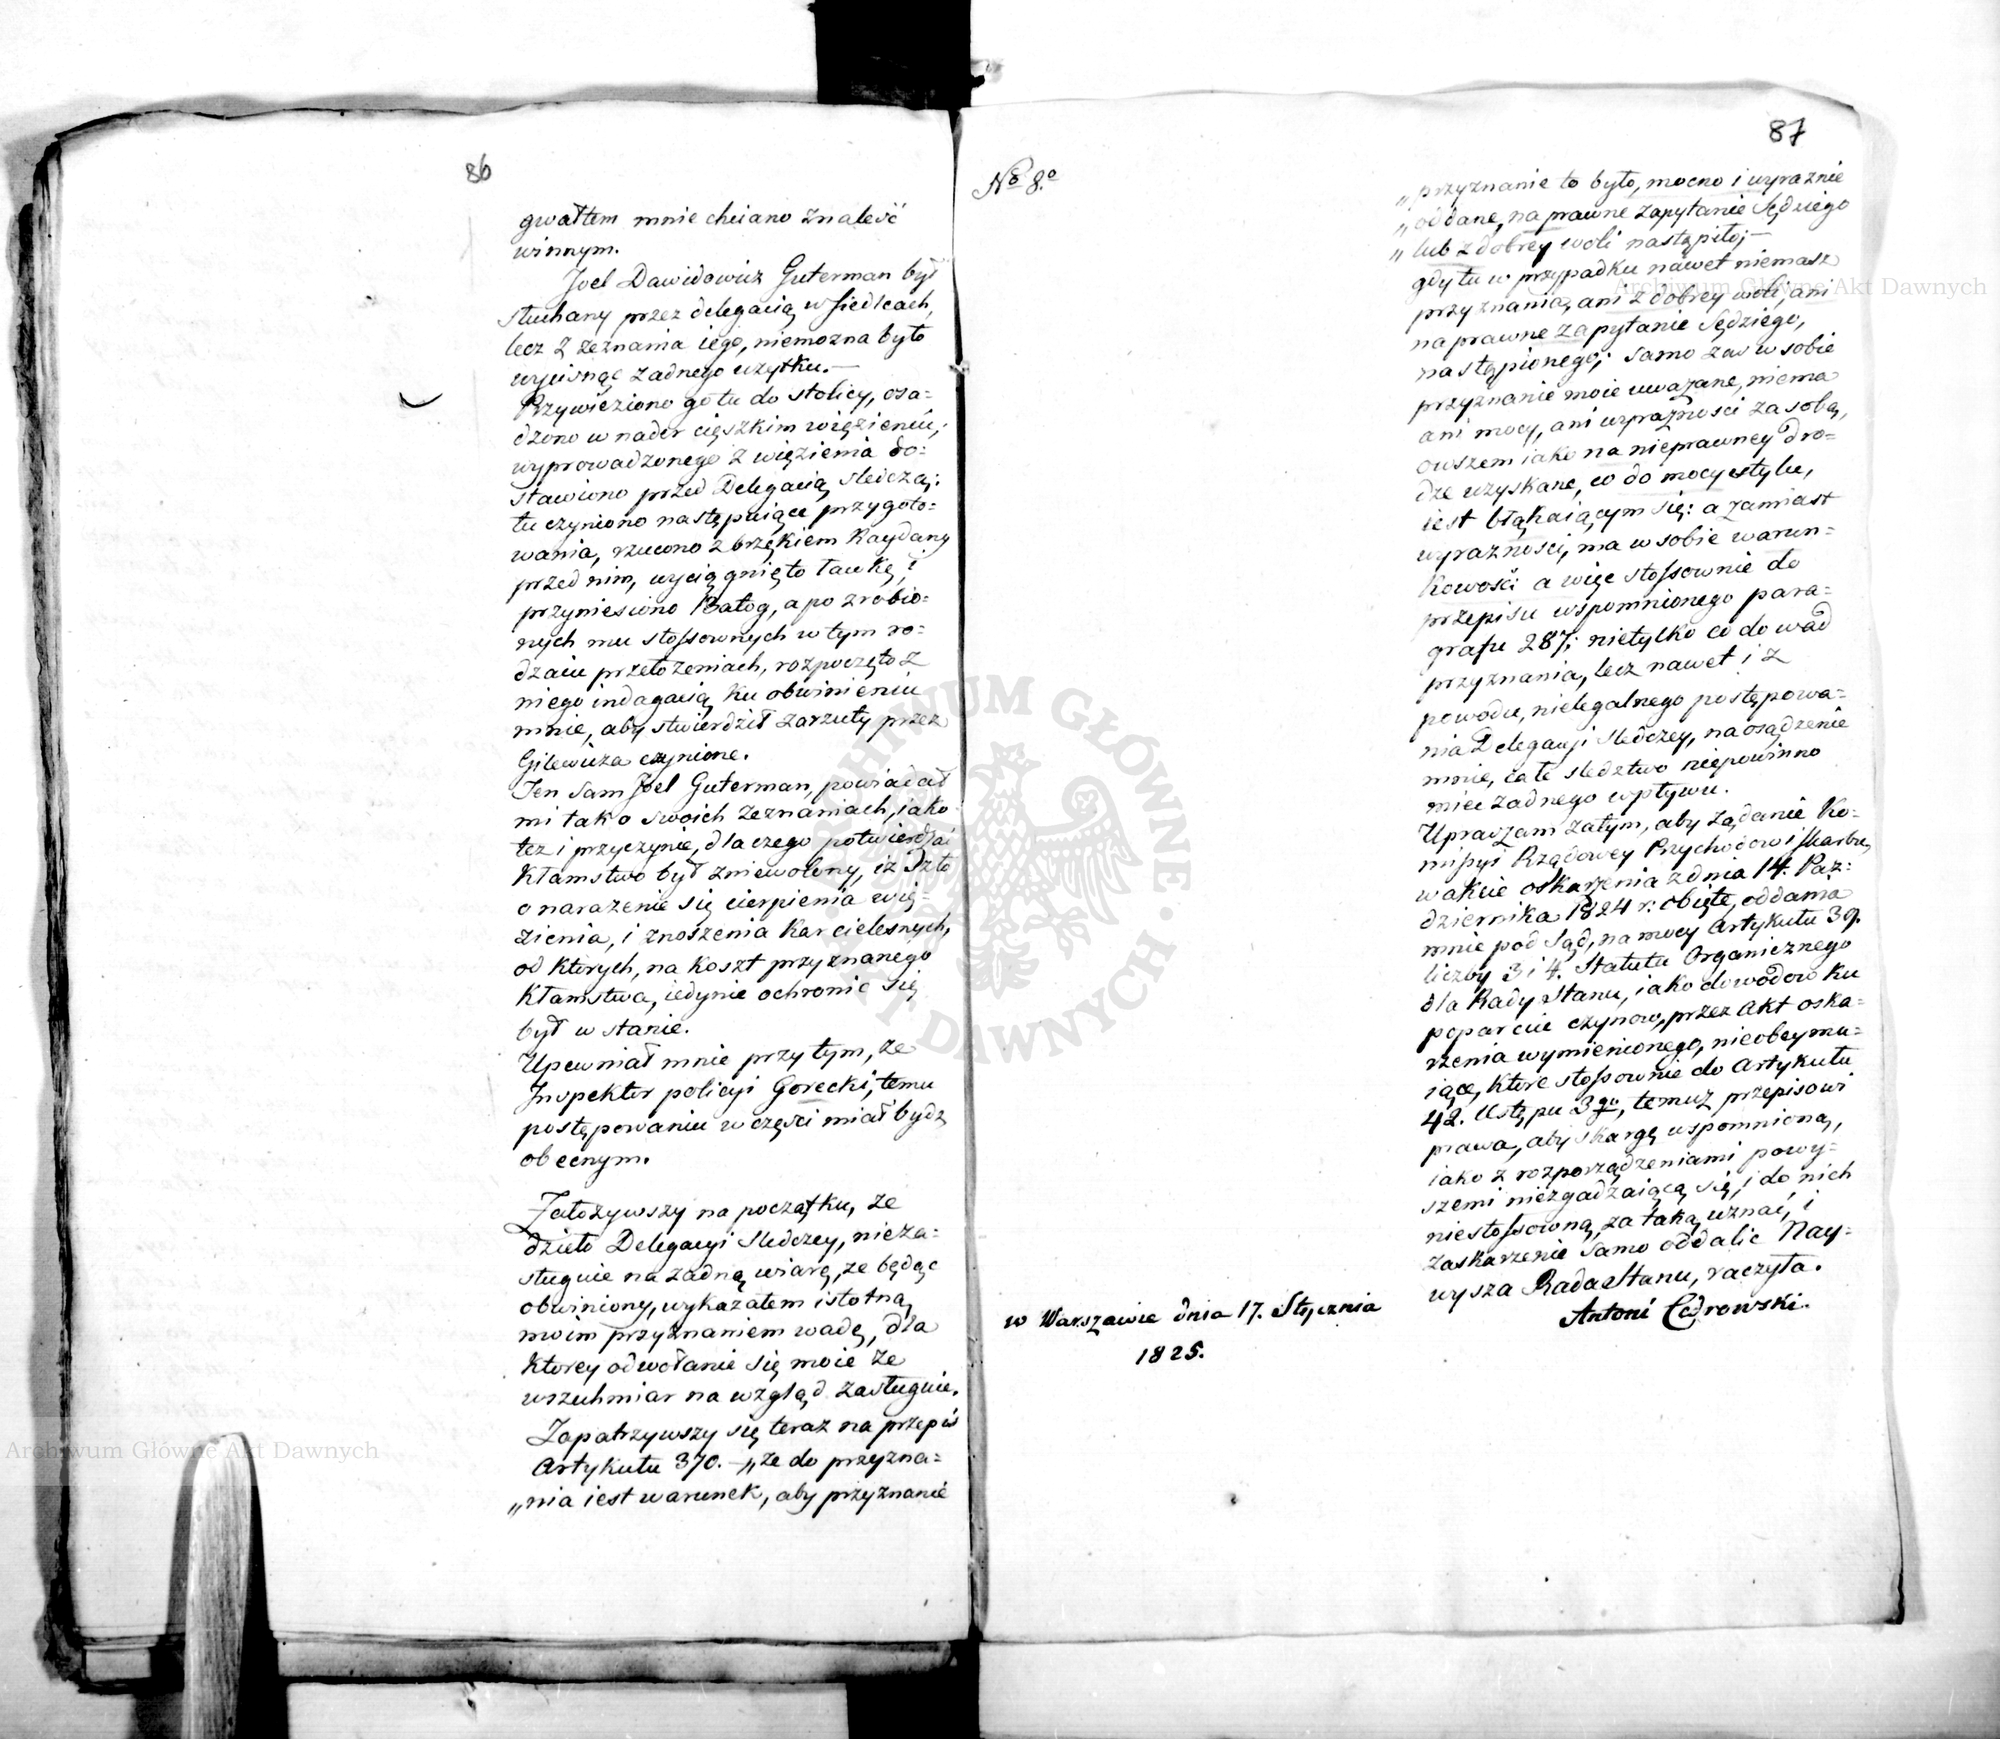 86
gwałtem mnie chciano znaleść
winnym.
Joel Dawidowicz Guterman był
słuchany przez delegacią w Siedlcach,
lecz z zeznania iego, niemożna było
wycisnąć żadnego użytku.—
Przywieziono go tu do stolicy, osa=
dzono w nader cięszkim więzieniu,
wyprowadzonego z więzienia do=
stawiono przed Delegacią śledczą:
tu czyniono następuiące przygoto=
wania, rzucono z brzękiem Kaydany
przed nim, wyciągnięto ławkę, i
przyniesiono Batog, a po zrobio=
nych mu stossownych w tym ro=
dzaiu przełożeniach, rozpoczęto z
niego indagacią ku obwinieniu
mnie, aby stwierdził zarzuty przez
Gilewicza czynione.
Ten sam Joel Guterman, powiadał
mi tak o swoich zeznaniach, iako
też i przyczynie, dla czego potwierdzać
Kłamstwo był zniewolony, iż szło
o narażenie się cierpienia wię=
zienia, i znoszenia Kar cielesnych,
od których, na koszt przyznanego
Kłamstwa, iedynie ochronić się
był w stanie.
Upewniał mnie przytym, że
Inspektor policyi Gorecki, temu
postępowaniu w części miał bydź
obecnym.
Założywszy na początku, że
dzieło Delegacyi śledczey, nieza=
sługuie na żadną wiarę, że będąc
obwiniony, wykazałem istotną
moim przyznaniem wadę, dla
Ktorey odwołanie się moie ze
wszechmiar na wzgląd zasługuie.
Zapatrzywszy się teraz na przepis
Artykułu 370. — „że do przyzna=
„nia iest warunek, aby przyznanie
87
No 8.o
„przyznanie to było, mocno i wyraźnie
„oddane, na prawne zapytanie Sędziego
„lub z dobrey woli nastąpiło;—
gdy tu w przypadku nawet niemasz
przyznania, ani z dobrey woli, ani
na prawne zapytanie Sędziego,
nastąpionego; samo zaś w sobie
przyznanie moie uważane, niema
ani mocy, ani wyraźności za sobą,
owszem iako na nieprawney dro=
dze uzyskane, co do mocy stylu,
iest błąkaiącym się: a zamiast
wyraźności, ma w sobie warun=
kowość: a więc stossownie do
przepisu wspomnionego para=
grafu 287; nietylko co do wad
przyznania, lecz nawet i z
powodu, nielegalnego postępowa=
nia Delegacyi śledczey, na osądzenie
mnie, całe śledztwo niepowinno
mieć żadnego wpływu.
Upraszam zatym, aby żądanie Ko=
missyi Rządowey Przychodow i Skarbu,
w akcie oskarżenia z dnia 14. Paź:
dziernika 1824 r: obięte, oddania
mnie pod Sąd, na mocy Artykułu 39.
liczby 3 i 4. Statutu Organicznego
dla Rady Stanu, iako dowodow ku
poparciu czynow, przez Akt oska=
rżenia wymienionego, nieobeymu=
iące, ktore stossownie do Artykułu
42. Ustępu 3go, temuż przepisowi
prawa, aby skargę wspomnioną,
iako z rozporządzeniami powy=
szemi niezgadzaiącą się, i do nich
niestossowną, za taką uznać, i
zaskarżenie samo oddalić Nay=
wysza Rada Stanu, raczyła.
Antoni Cedrowski.
w Warszawie dnia 17. Stycznia
1825.
Archiwum Główne Akt Dawnych
Archiwum Główne Akt Dawnych
ARCHIWUM GŁÓWNE AKT DAWNYCH